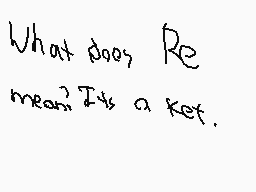 What does Re
mean? Its a ket.